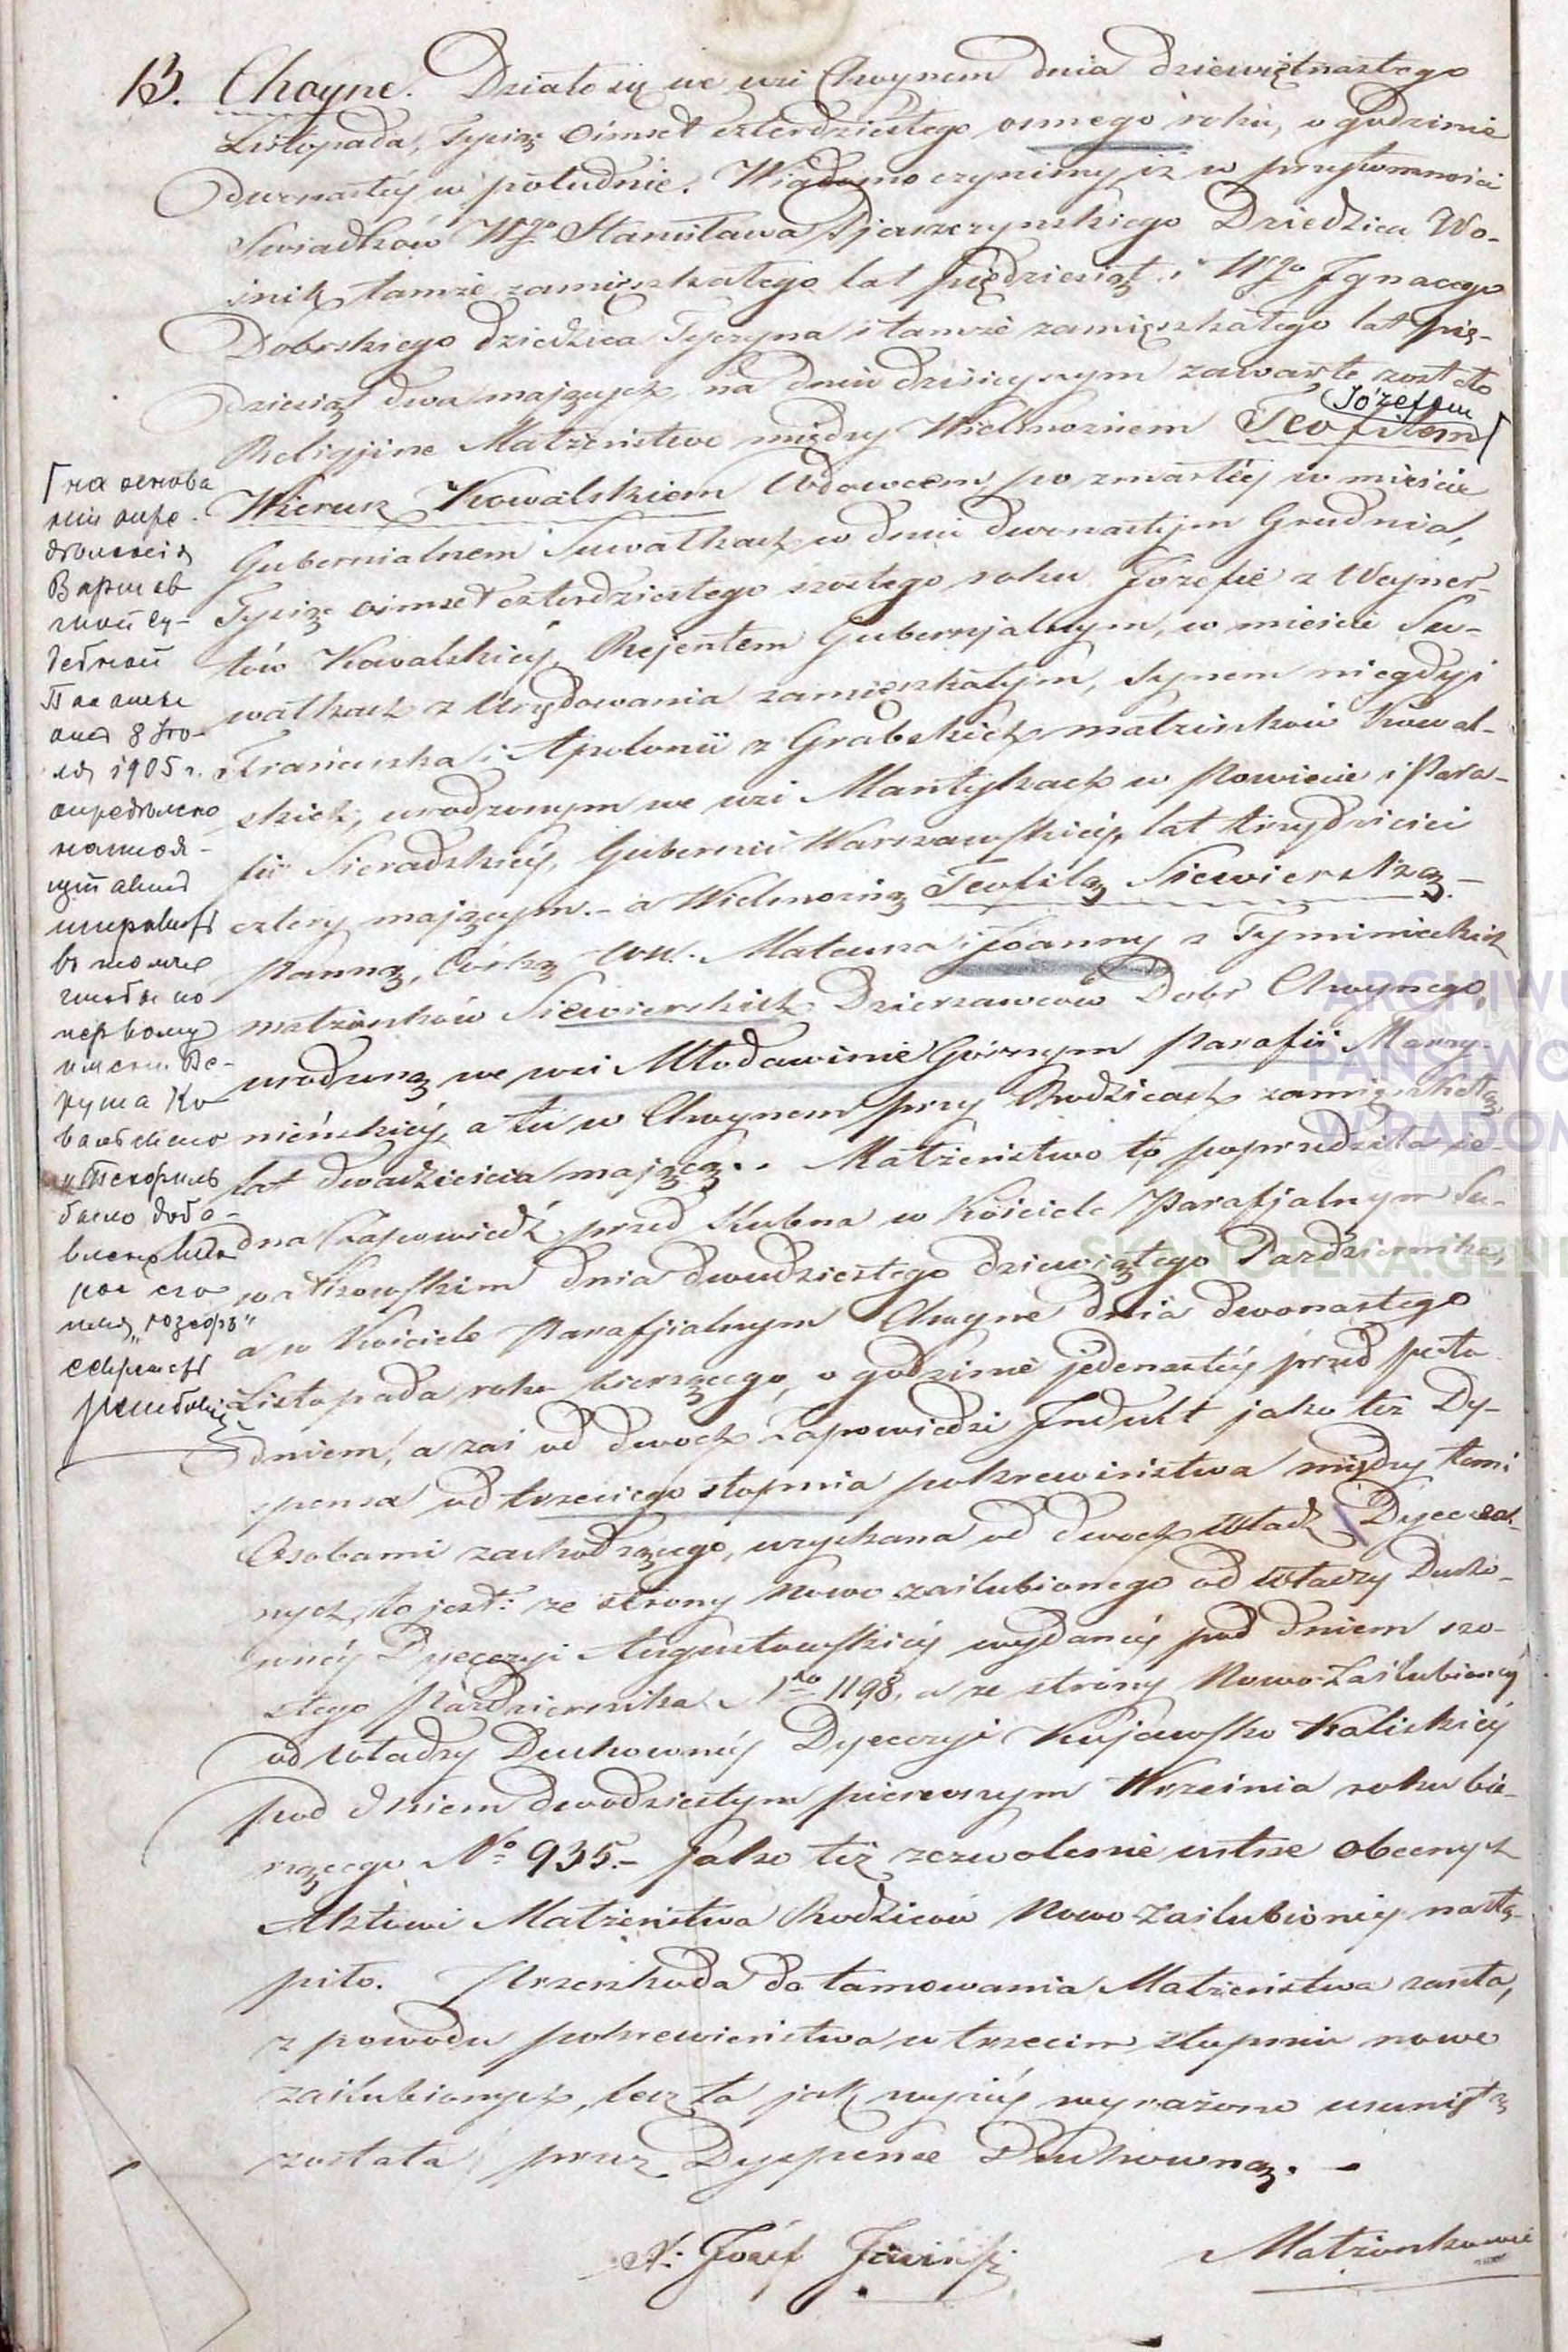 13. Choyne. Działo się we wsi Choynem dnia dziewiętnastego
Listopada, Tysiąc Ośmset czterdziestego osmego roku, o godzinie
dwunastéj w południe. Wiadomo czynimy iż w przytomności
Swiadków Wgo Stanisława Pjaszczynskiego Dziedzica Wo-
śnik tamże zamięszkałego lat piędziesiąt i Wgo Jgnacego
Dobrskiego dziedzica Tyczyna i tamże zamięszkałego lat pię-
dziesiąt dwa mających na dniu dzisieyszym zawarte zostało
Józefem
Religijne Małżeństwo między Wielmożnem Teofilem
Wierusz Kowalskiem Wdowcem po zmarłéj w mieście
Gubernialnem Suwałkach w dniu dwunastym Grudnia,
Tysiąc ośmset czterdziestego szostego roku Józefie z Wejner-
tów Kowalskiéj, Rejentem Gubernjalnym, w mieście Su-
wałkach z Urzędowania zamięszkałym, Synem niegdyś
Franciszka i Apolonii z Grabskich małżonków Kowal-
skich, urodzonym we wsi Mantykach w Powiecie i Para-
fii Sieradzkiéj, Gubernii Warszawskiéj, lat trzydzieści
cztery mającym. - a Wielmożną Teofilą Siewierską -
Panną, Córką WW. Mateusza i Joanny z Tyminieckich
małżonków Siewierskich Dzierżawców Dobr Choynego,
urodzoną we wsi Młodawinie Górnym Parafii Marzy-
nieńskiéj, a tu w Choynem przy Rodzicach zamięszkałą
lat dwadzieścia mającą. . Małżeństwo to poprzedziła je-
dna Zapowiedź przed Slubna w Kościele Parafjalnym Su-
wałkowskim dnia dwudziestego dziewiątego Pazdziernika,
a w Kościele Parafjialnym Choyne dnia dwonastego
Listopada roku bierzącego, o godzinie jedenastéj przed poło-
dniem, a zaś od dwoch Zapowiedzi Jndult jako też Dy-
spensa od trzeciego stopnia pokrewieństwa między temi
Osobami zachodzącego, uzyskana od dwoch Władz Dyecezal-
nych, to jest: ze strony Nowo zaślubionego od Władzy Ducho-
wnéj Dyecezyi Augustowskiéj wydanéj pod dniem szo-
stego Pazdziernika Nro 1198, a ze strony Nowo-Zaślubionéj
od Władzy Duchownéj Dyecezyi Kujawsko Kaliskiéj
pod dniem dwodziestym pierwszym Września roku bie-
rzącego No 935. - Jako też zezwolenie ustne obecnych
Aktowi Małżeństwa Rodziców Nowo Zaślubionéj nastą-
piło. Przeszkoda do tamowania Małżeństwa zaszła,
z powodu pokrewieństwa w trzecim stopniu nowo
zaślubionych, lecz ta jak wyżéj wyrażono usuniętą
została przez Dyspense Duchowną. -
X. Józef Małżonkowie
на основа
нiи опре-
дѣленiя
Варшав
ской Су-
дебной
Палаты
отъ 8 Iю-
ля 1905 г.
опредѣлено
настоя-
щiй актъ
исправить
въ томъ
чтобы къ
первому
имени Ве-
руша Ко-
вальскаго
"Теофиль"
было доба-
влено вто-
рое его
имя "Iозефъ"
ARCHIWUM
PAŃSTWOWE
W RADOM
SKANOTEKA.GENE